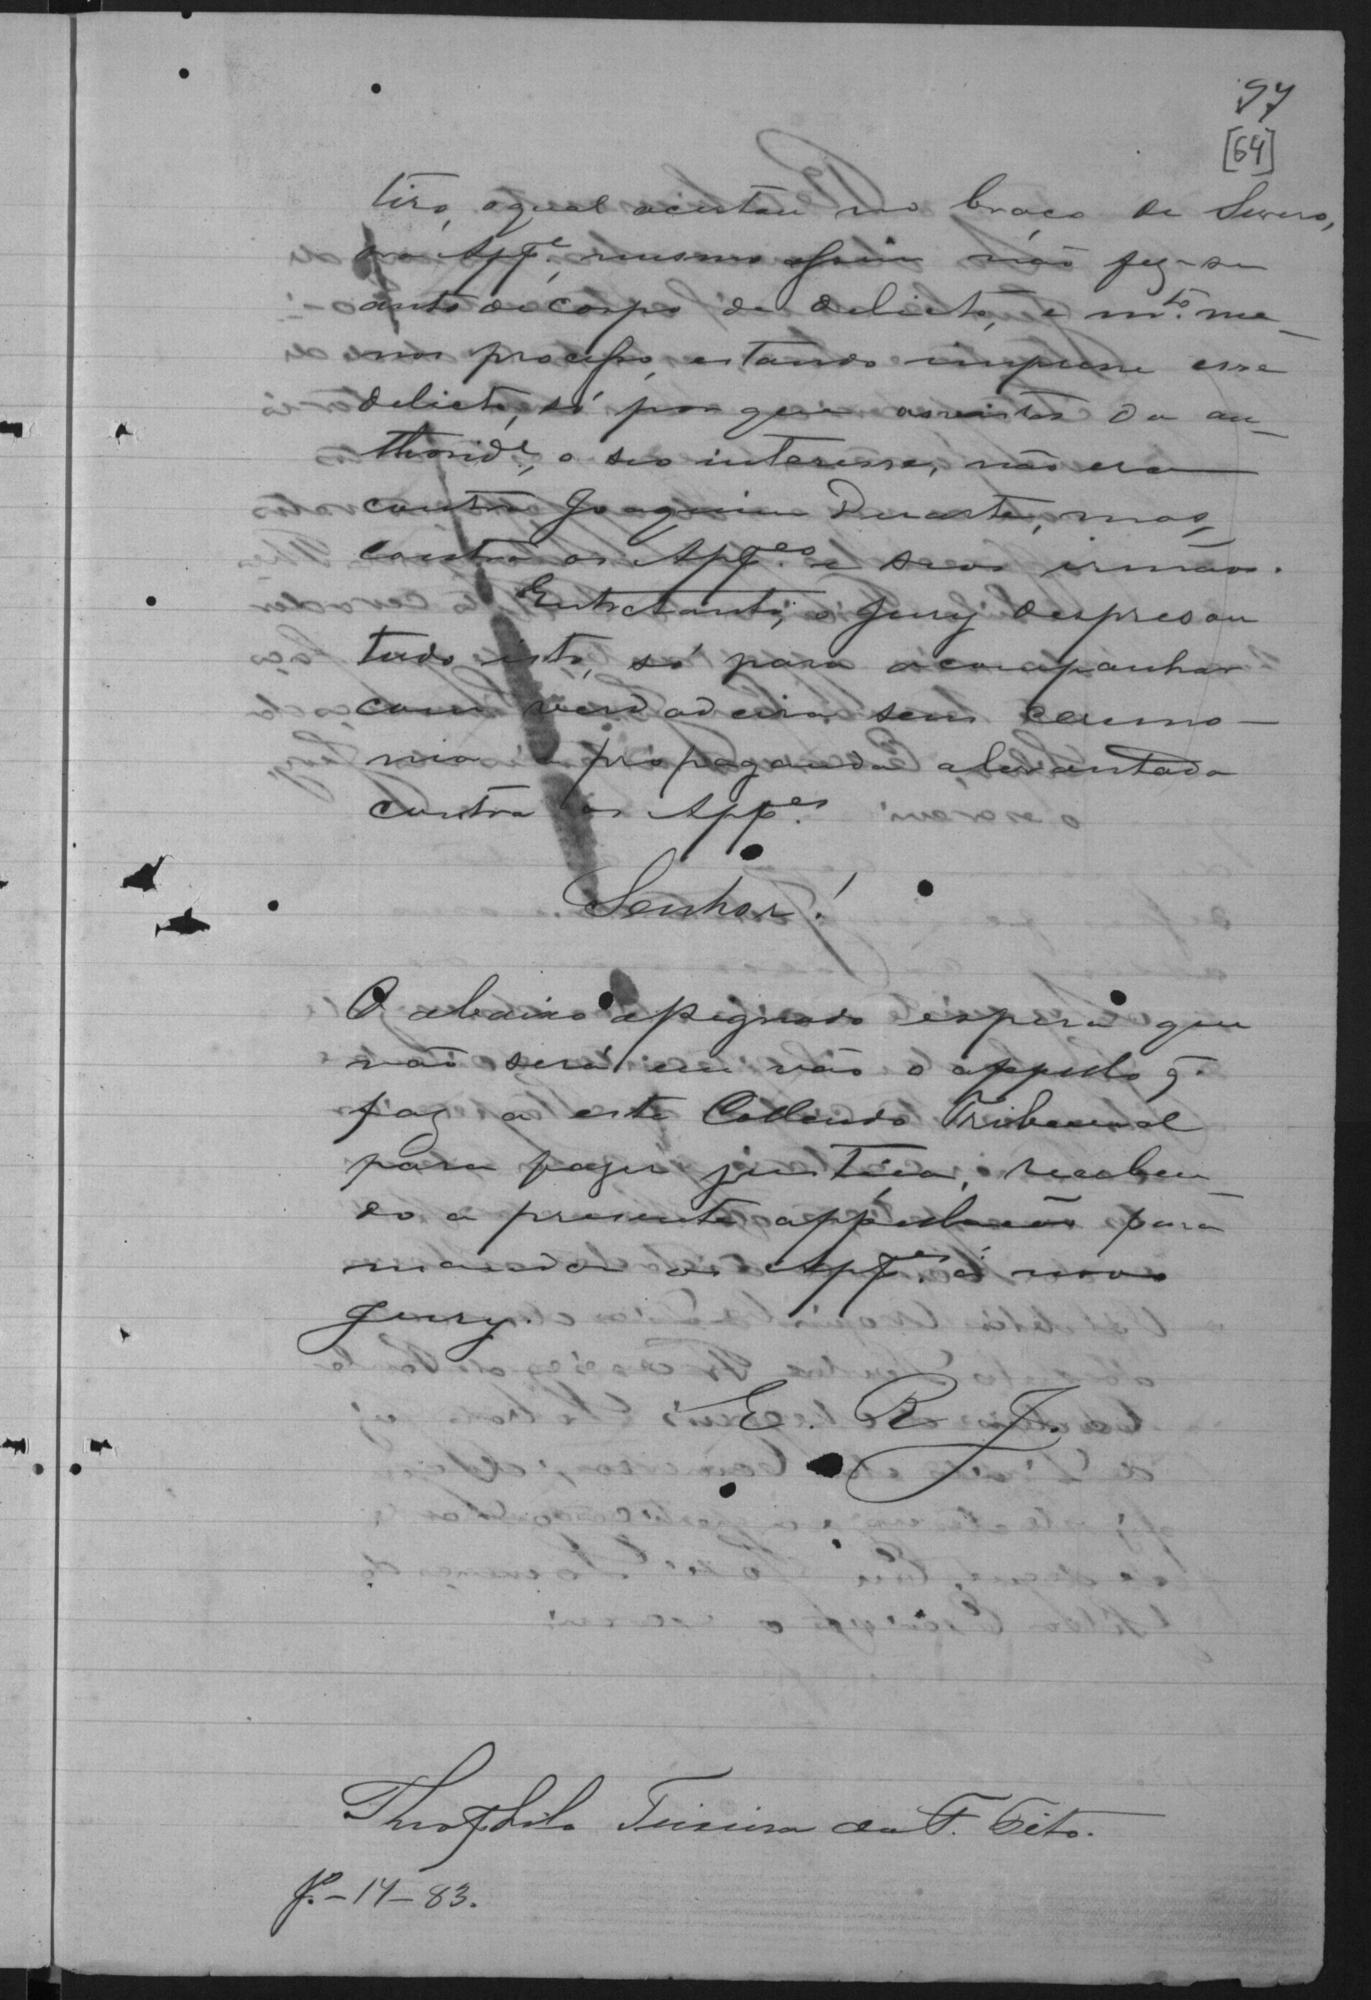 97
[64]
tiro, o qual acertou no braço de Severo,
mesmo assim não fez-se
auto de corpo de delicto, e m.to me-
nos processo, estando impune esse
delicto, só por que as vistas da au-
thorid.e, o seo interesse, não era
contra Joaquim Duarte, mas,
contra os App.es e seus irmãos.
Entretanto, o Jury despresou
tudo isto, só para acompanhar
com verdadeira sem cerimo-
nia a propaganda alevantada
contra os App.es
Senhor!
O abaixo assignado espera que
não será em vão o appello q.
faz a este Collendo Tribunal
para fazer justiça, receben-
do a presente appellação para
mandar os App.es á novo
Jury.
E. R. J.
Theophilo Teixeira da F.
J.o-14-83.